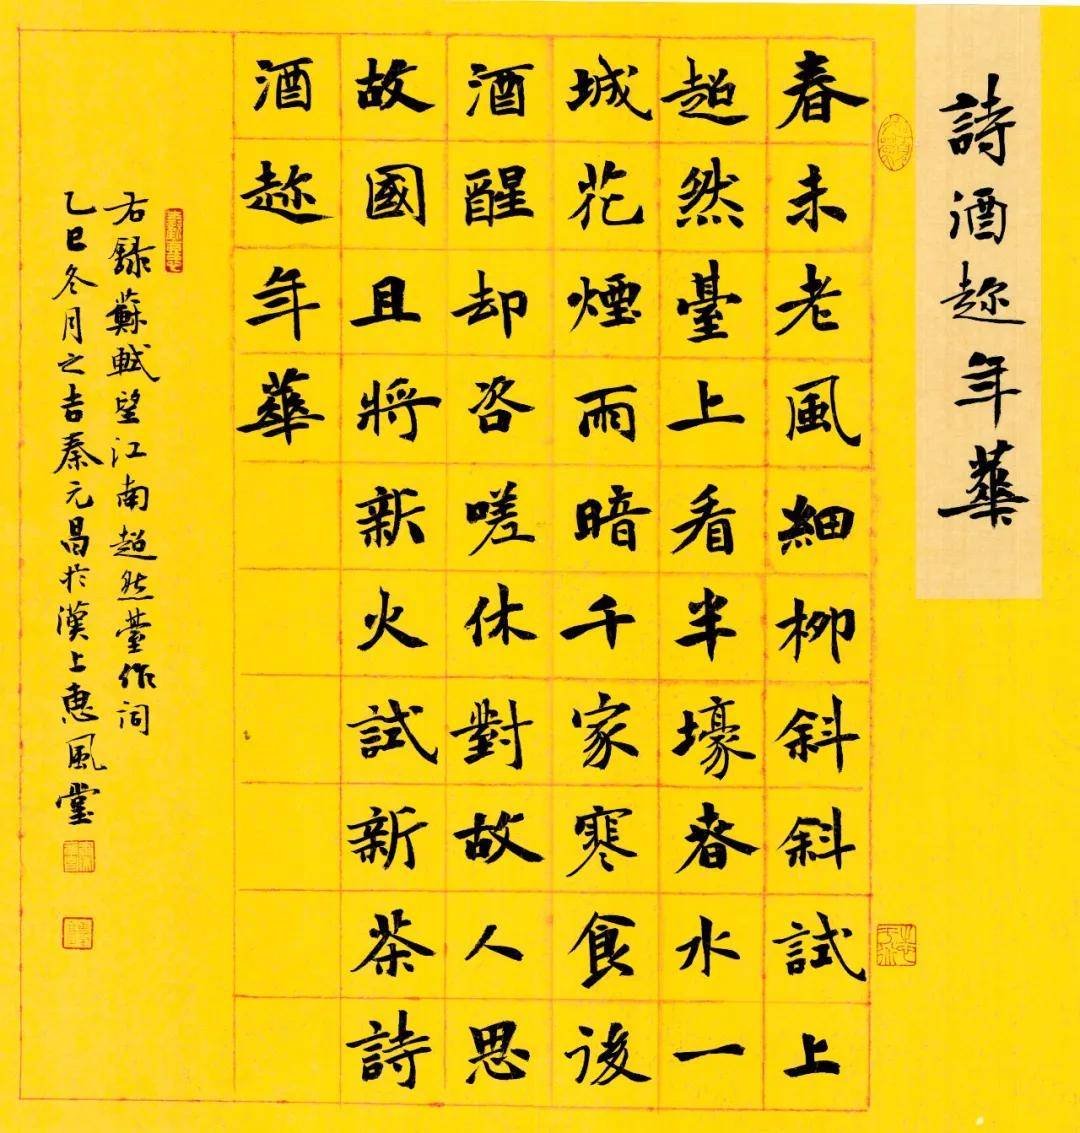 詩酒趂年華
春未老風細柳斜斜試上
超然臺上看半壕春水一
城花煙雨暗千家寒食後
酒醒却咨嗟休對故人思
故國且將新火試新茶詩
酒趂年華
右錄蘇軾望江南超然臺作詞
乙巳冬月之吉秦元昌於漢上惠風堂